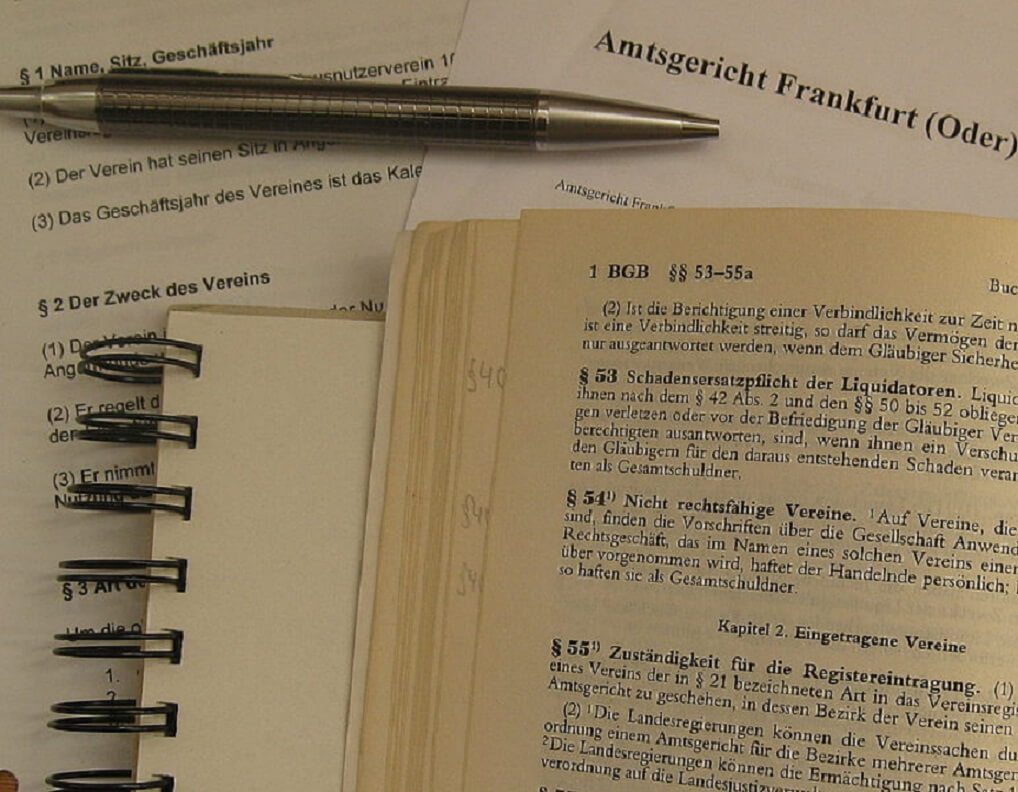 § 1 Name, Sitz, Geschäftsjahr
usnutzerverein
(2) Der Verein hat seinen Sitz in
(3) Das Geschäftsjahr des Vereines ist das Kale
§ 2 Der Zweck des Vereins
der Nu
(1) Der Verein
(2) Er regelt d
der
(3) Er nimmt
§ 3 Art
Um die
1.
Amtsgericht Frankfurt (Oder)
Amtsgericht Frank
1 BGB §§ 53–55a
Buc
(2) Ist die Berichtigung einer Verbindlichkeit zur Zeit n
ist eine Verbindlichkeit streitig, so darf das Vermögen der
nur ausgeantwortet werden, wenn dem Gläubiger Sicherhe
§ 53 Schadensersatzpflicht der Liquidatoren. Liquid
ihnen nach dem § 42 Abs. 2 und den §§ 50 bis 52 obliegen
gen verletzen oder vor der Befriedigung der Gläubiger Ver
berechtigten ausantworten, sind, wenn ihnen ein Verschu
den Gläubigern für den daraus entstehenden Schaden veran
ten als Gesamtschuldner.
§ 54¹⁾ Nicht rechtsfähige Vereine. ¹Auf Vereine, die
sind, finden die Vorschriften über die Gesellschaft Anwend
Rechtsgeschäft, das im Namen eines solchen Vereins einem
über vorgenommen wird, haftet der Handelnde persönlich;
so haften sie als Gesamtschuldner.
Kapitel 2. Eingetragene Vereine
§ 55¹⁾ Zuständigkeit für die Registereintragung. (1)
eines Vereins der in § 21 bezeichneten Art in das Vereinsregis
Amtsgericht zu geschehen, in dessen Bezirk der Verein seinen
(2) ¹Die Landesregierungen können die Vereinssachen du
ordnung einem Amtsgericht für die Bezirke mehrerer Amtsger
²Die Landesregierungen können die Ermächtigung nach Satz 1
verordnung auf die Landesjustizverw
§40